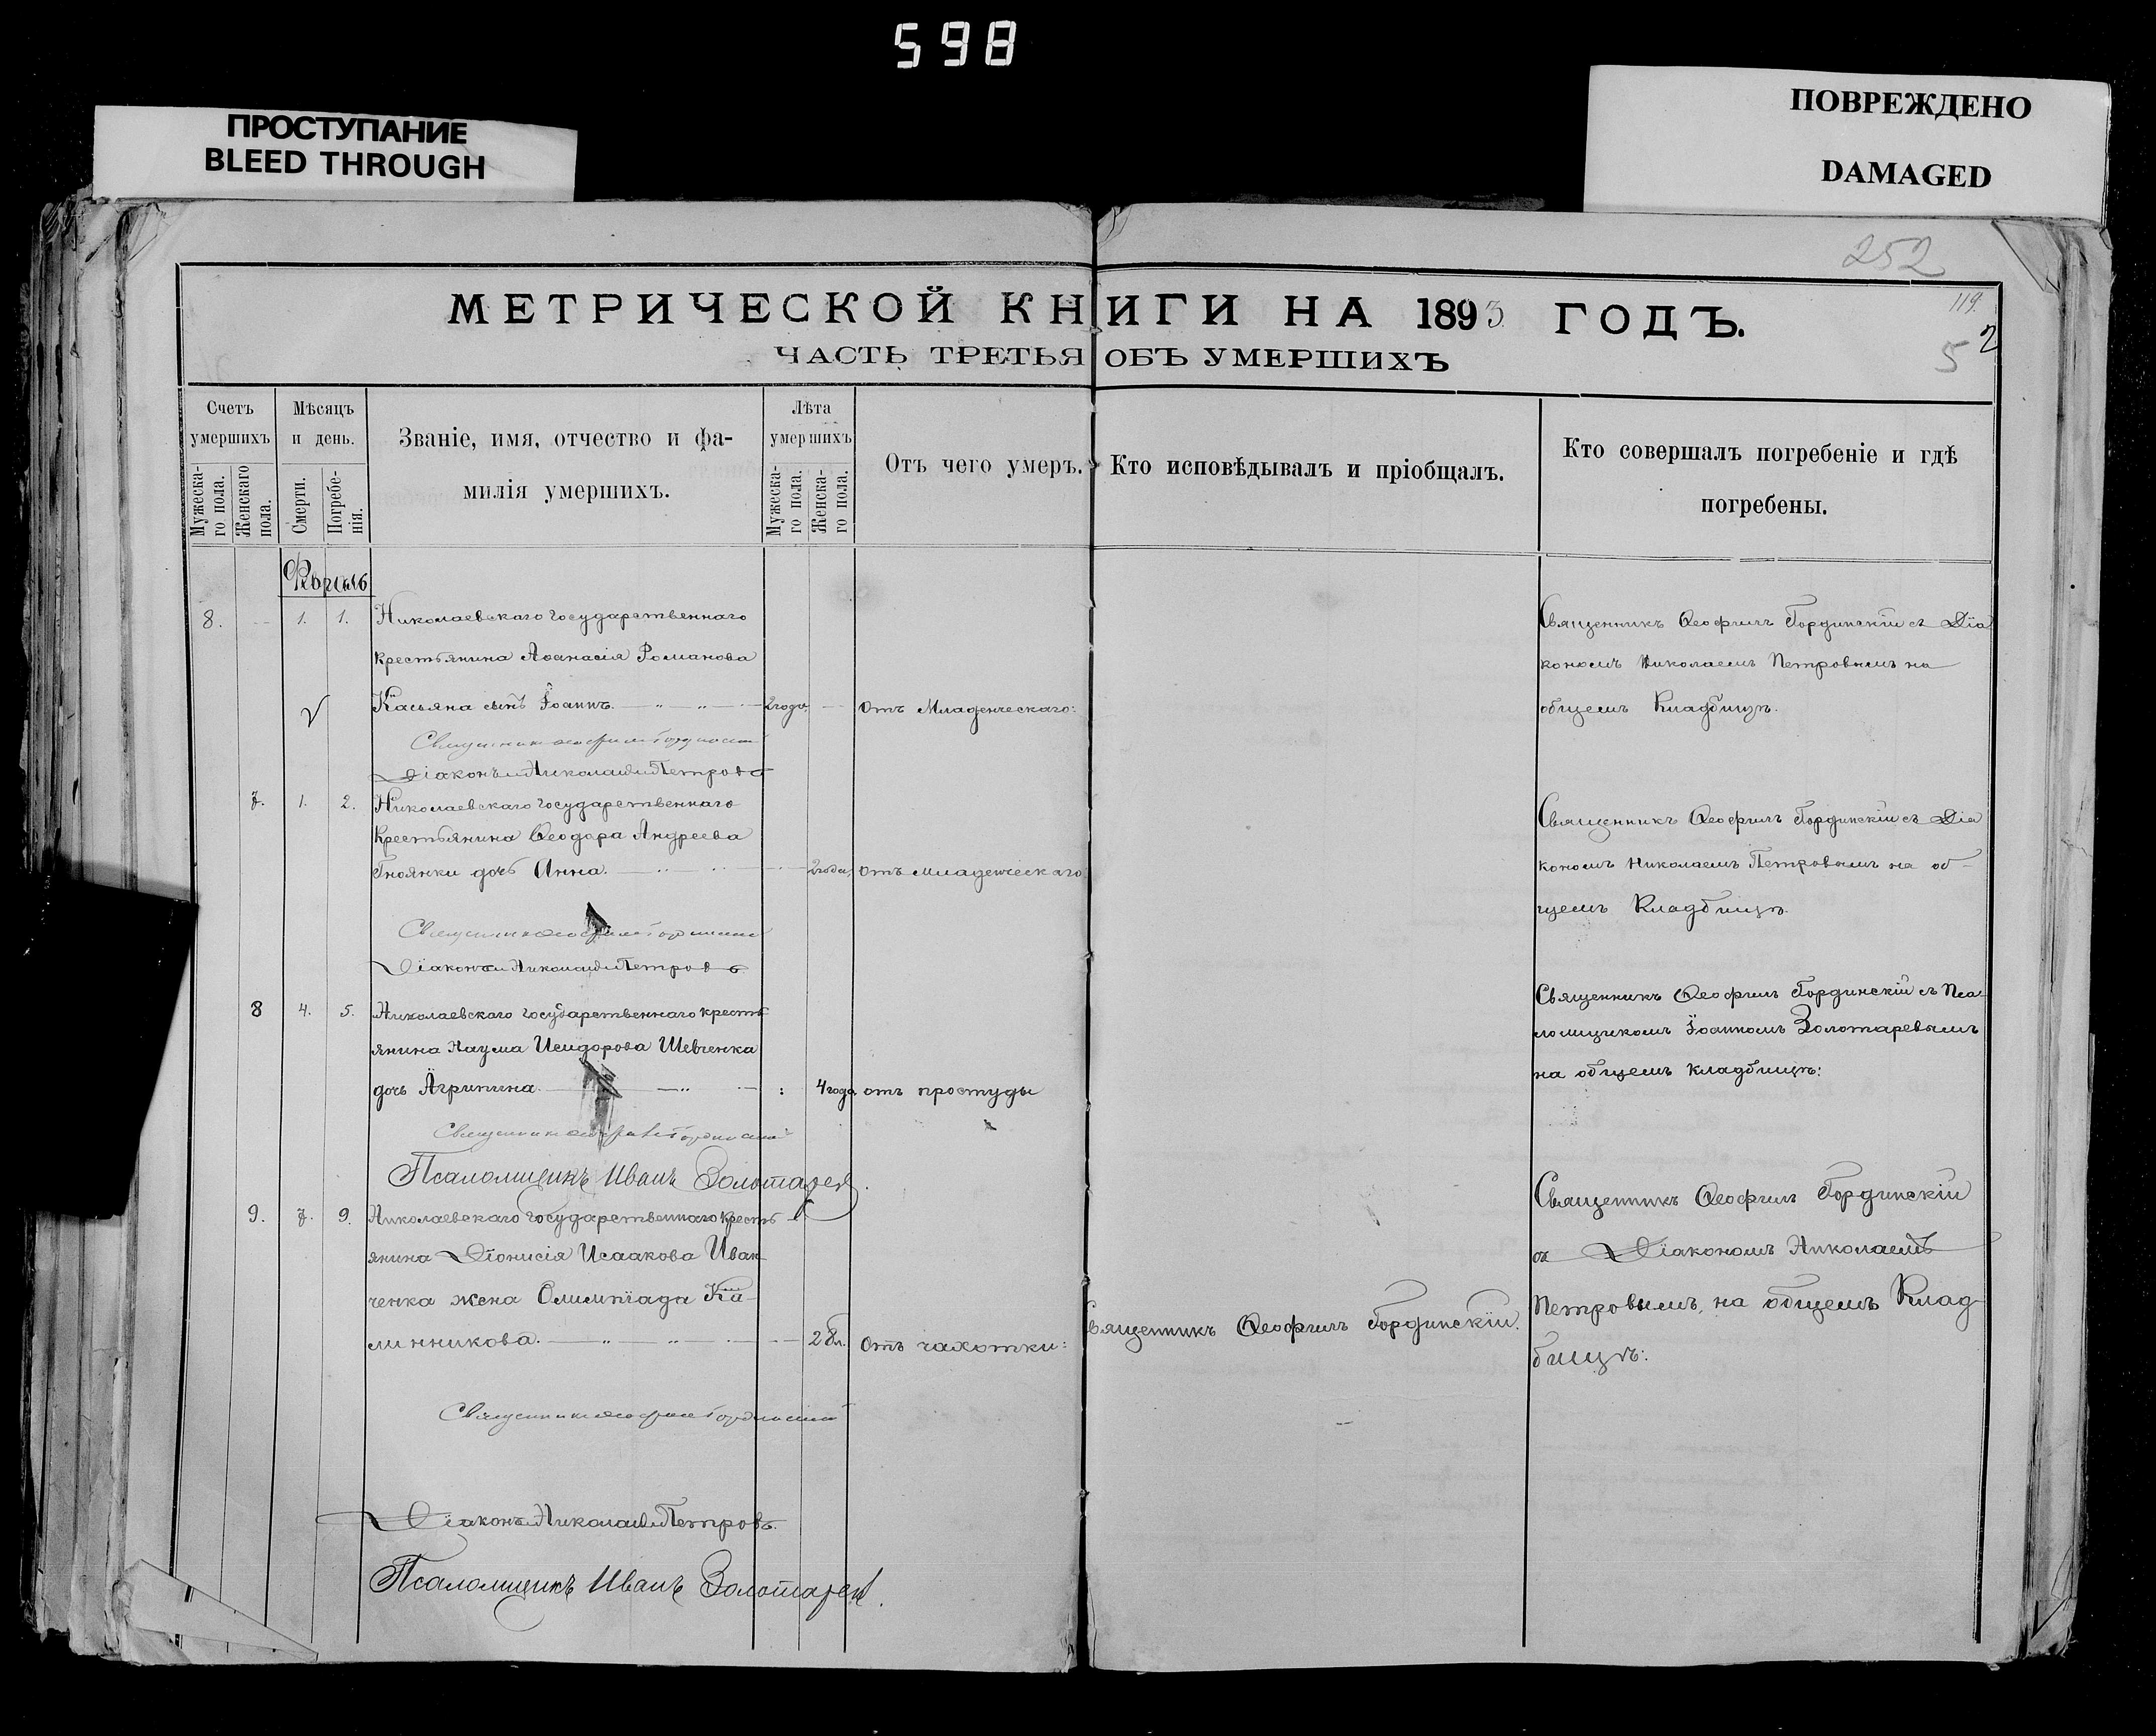 598
ПРОСТУПАНИЕ
BLEED THROUGH
ПОВРЕЖДЕНО
DAMAGED
252
119.
52
МЕТРИЧЕСКОЙ КНИГИ НА 1893 ГОДЪ.
ЧАСТЬ ТРЕТЬЯ ОБЪ УМЕРШИХЪ
Счетъ умершихъ
Мужеска-го пола.
Женскаго пола.
Мѣсяцъ и день.
Смерти.
Погребе-нія.
Званіе, имя, отчество и фа-
милія умершихъ.
Лѣта умершихъ
Мужеска-го пола.
Женска-го пола.
Отъ чего умеръ.
Кто исповѣдывалъ и пріобщалъ.
Кто совершалъ погребеніе и гдѣ
погребены.
8. 1. 1. Николаевскаго государственнаго
крестьянина Аѳанасія Романова
Касьяна сынъ Іоаннъ. 2 года. отъ Младенческаго:
Священникъ Ѳеофилъ Гординскій съ Діа
кономъ Николаемъ Петровымъ на
общемъ Кладбищѣ.
Священникъ Ѳеофилъ Гординскій
Діаконъ Николай Петровъ
7. 1. 2. Николаевскаго государственнаго
крестьянина Ѳеодора Андреева
Гноянки дочь Анна. 2 года, отъ младенческаго
Священникъ Ѳеофилъ Гординскій съ Діа
кономъ Николаемъ Петровымъ на об-
щемъ Кладбищѣ.
Священникъ Ѳеофилъ Гординскій
Діаконъ Николай Петровъ.
8 4. 5. Николаевскаго государственнаго кресть
янина Наума Исидорова Шевченка
дочь Агрипина. 4 года отъ простуды
Священникъ Ѳеофилъ Гординскій съ Пса-
ломщикомъ Іоанномъ Золотаревымъ
на общемъ кладбищѣ:
Священникъ Ѳеофилъ Гординскій
Псаломщикъ Иванъ Золотарев.
9. 7. 9. Николаевскаго государственнаго кресть
янина Діонисія Исаакова Иван
ченка жена Олимпіада
линникова. 28 л. отъ чахотки:
Священникъ Ѳеофилъ Гординскій.
Священникъ Ѳеофилъ Гординскій
съ Діакономъ Николаемъ
Петровымъ, на общемъ Клад
бищѣ:
Священникъ Ѳеофилъ Гординскій
Діаконъ Николай Петровъ.
Псаломщикъ Иванъ Золотарев.